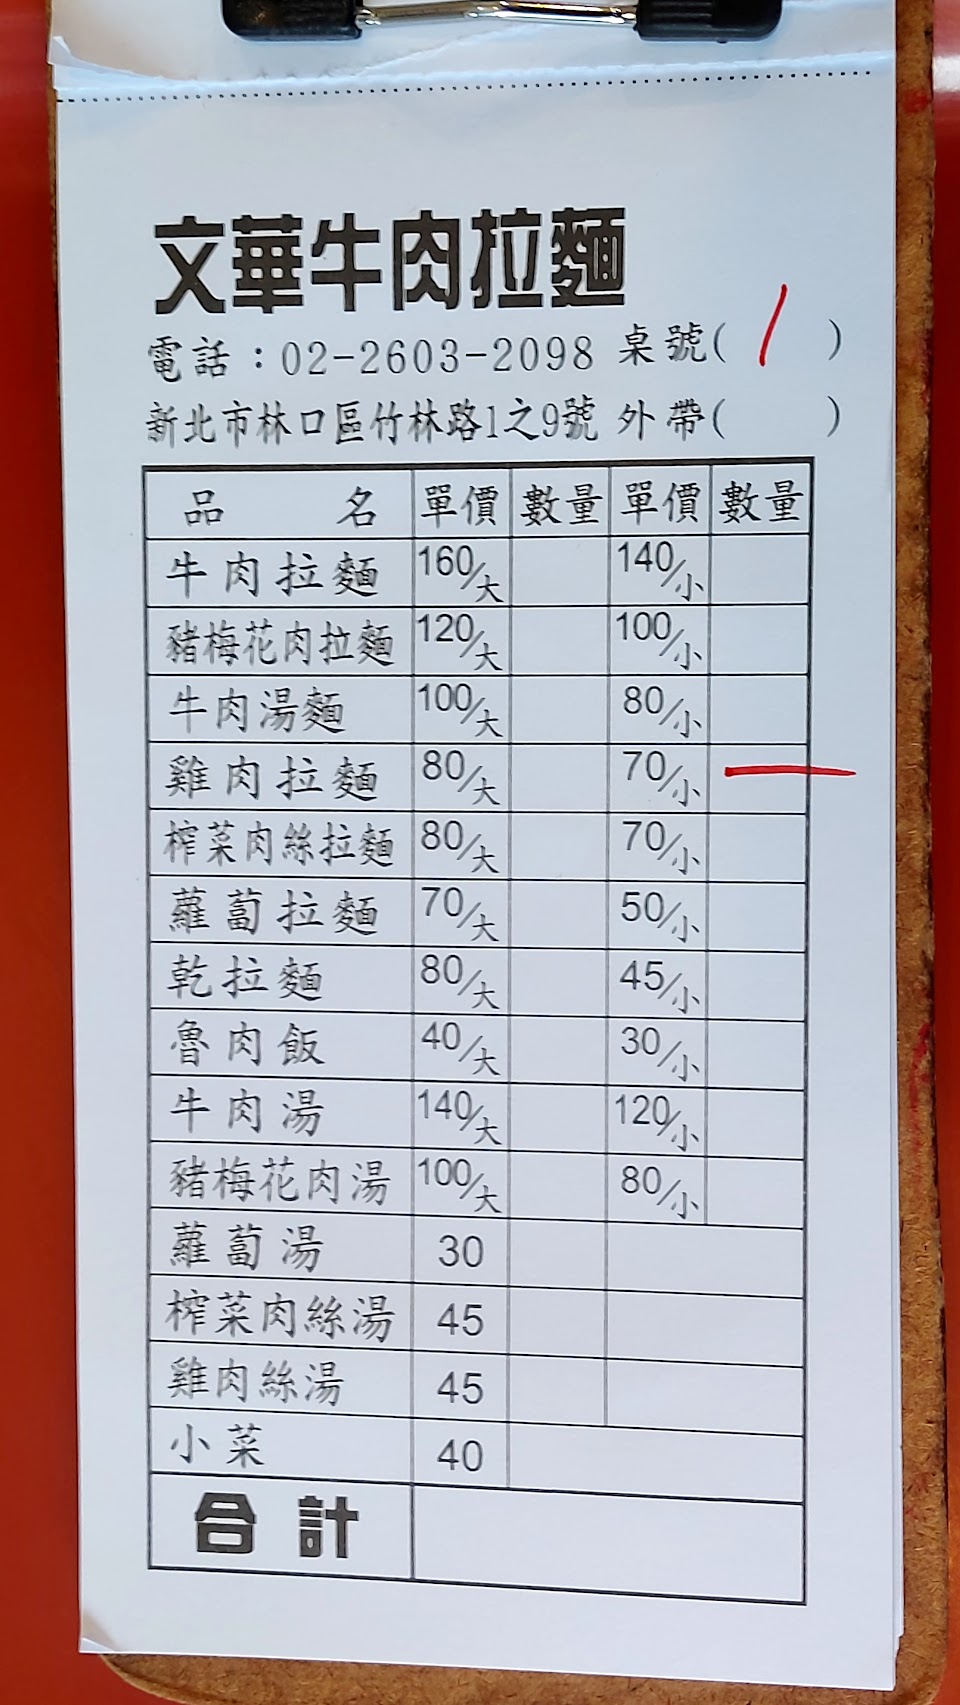 文華牛肉拉麵
電話：02-2603-2098 桌號( / )
新北市林口區竹林路1之9號 外帶( )
品名 單價 數量 單價 數量
牛肉拉麵 160/大 140/小
豬梅花肉拉麵 120/大 100/小
牛肉湯麵 100/大 80/小
雞肉拉麵 80/大 70/小 一
榨菜肉絲拉麵 80/大 70/小
蘿蔔拉麵 70/大 50/小
乾拉麵 80/大 45/小
魯肉飯 40/大 30/小
牛肉湯 140/大 120/小
豬梅花肉湯 100/大 80/小
蘿蔔湯 30
榨菜肉絲湯 45
雞肉絲湯 45
小菜 40
合計